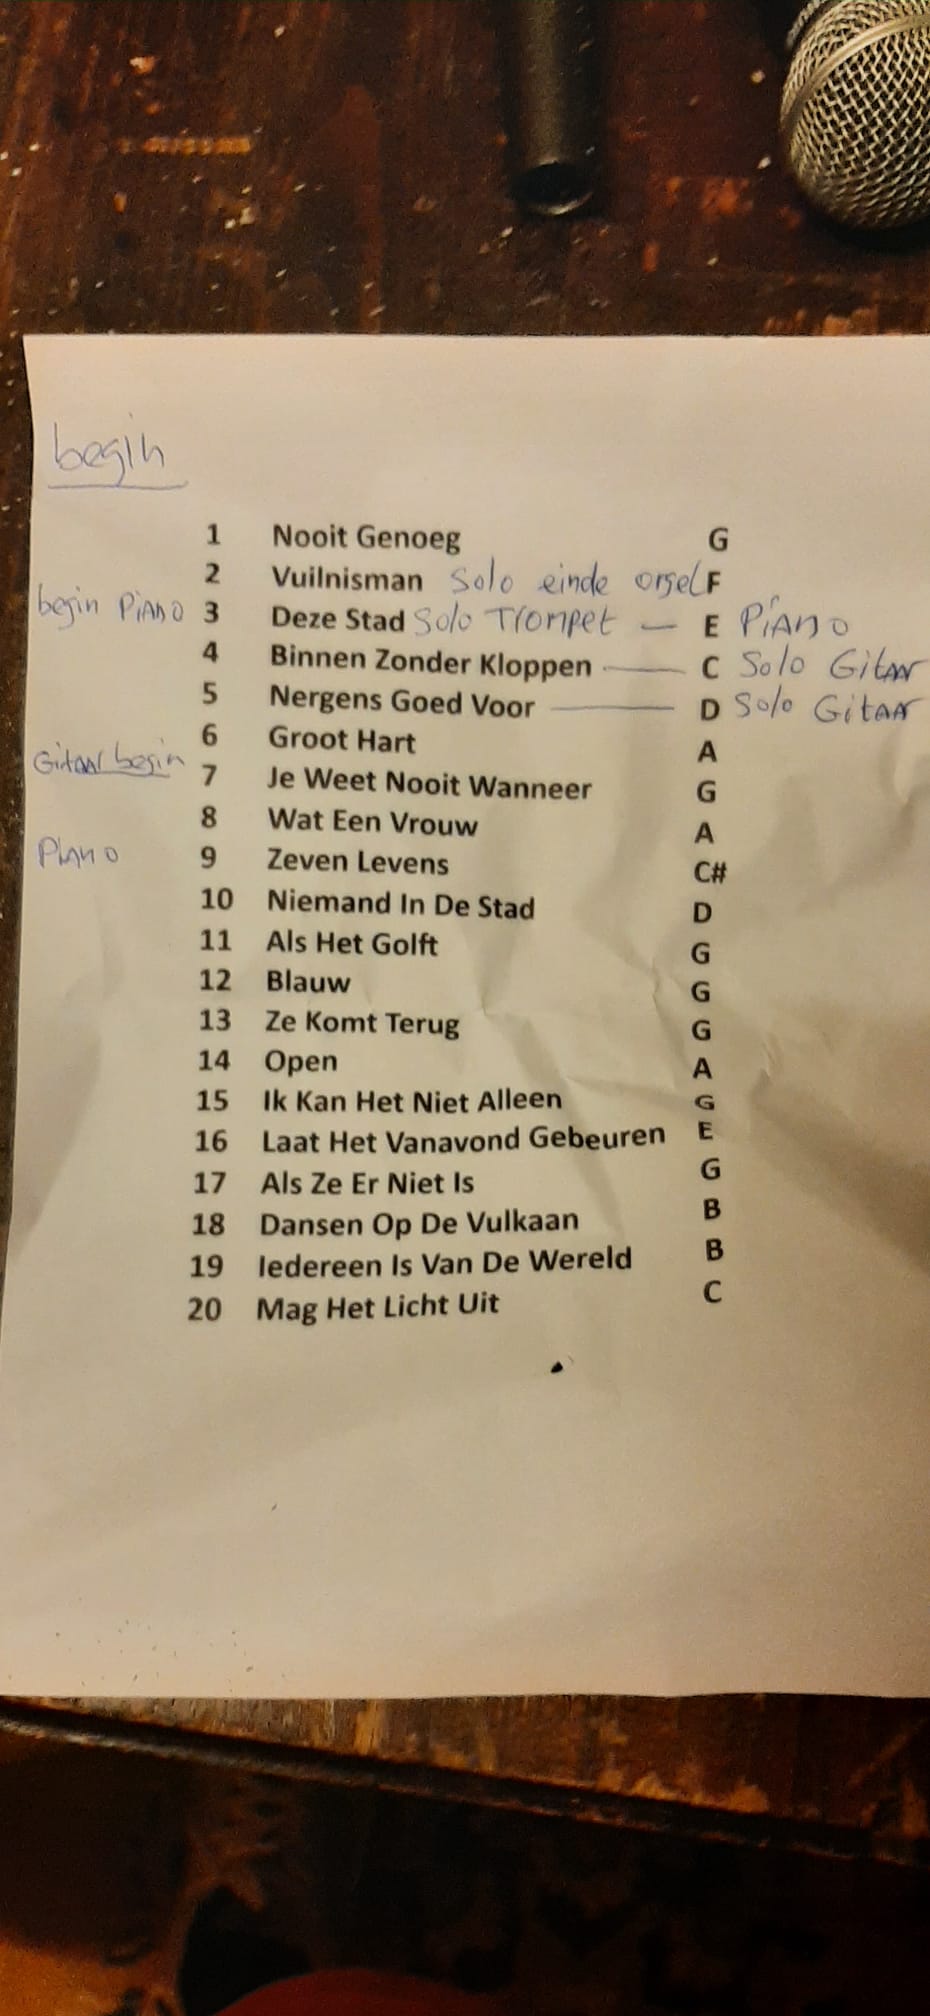 begin
1 Nooit Genoeg G
2 Vuilnisman Solo einde orgel F
begin Piano 3 Deze Stad Solo Trompet — E Piano
4 Binnen Zonder Kloppen — C Solo Gitaar
5 Nergens Goed Voor — D Solo Gitaar
6 Groot Hart A
Gitaar begin 7 Je Weet Nooit Wanneer G
8 Wat Een Vrouw A
Piano 9 Zeven Levens C#
10 Niemand In De Stad D
11 Als Het Golft G
12 Blauw G
13 Ze Komt Terug G
14 Open A
15 Ik Kan Het Niet Alleen G
16 Laat Het Vanavond Gebeuren E
17 Als Ze Er Niet Is G
18 Dansen Op De Vulkaan B
19 Iedereen Is Van De Wereld B
20 Mag Het Licht Uit C